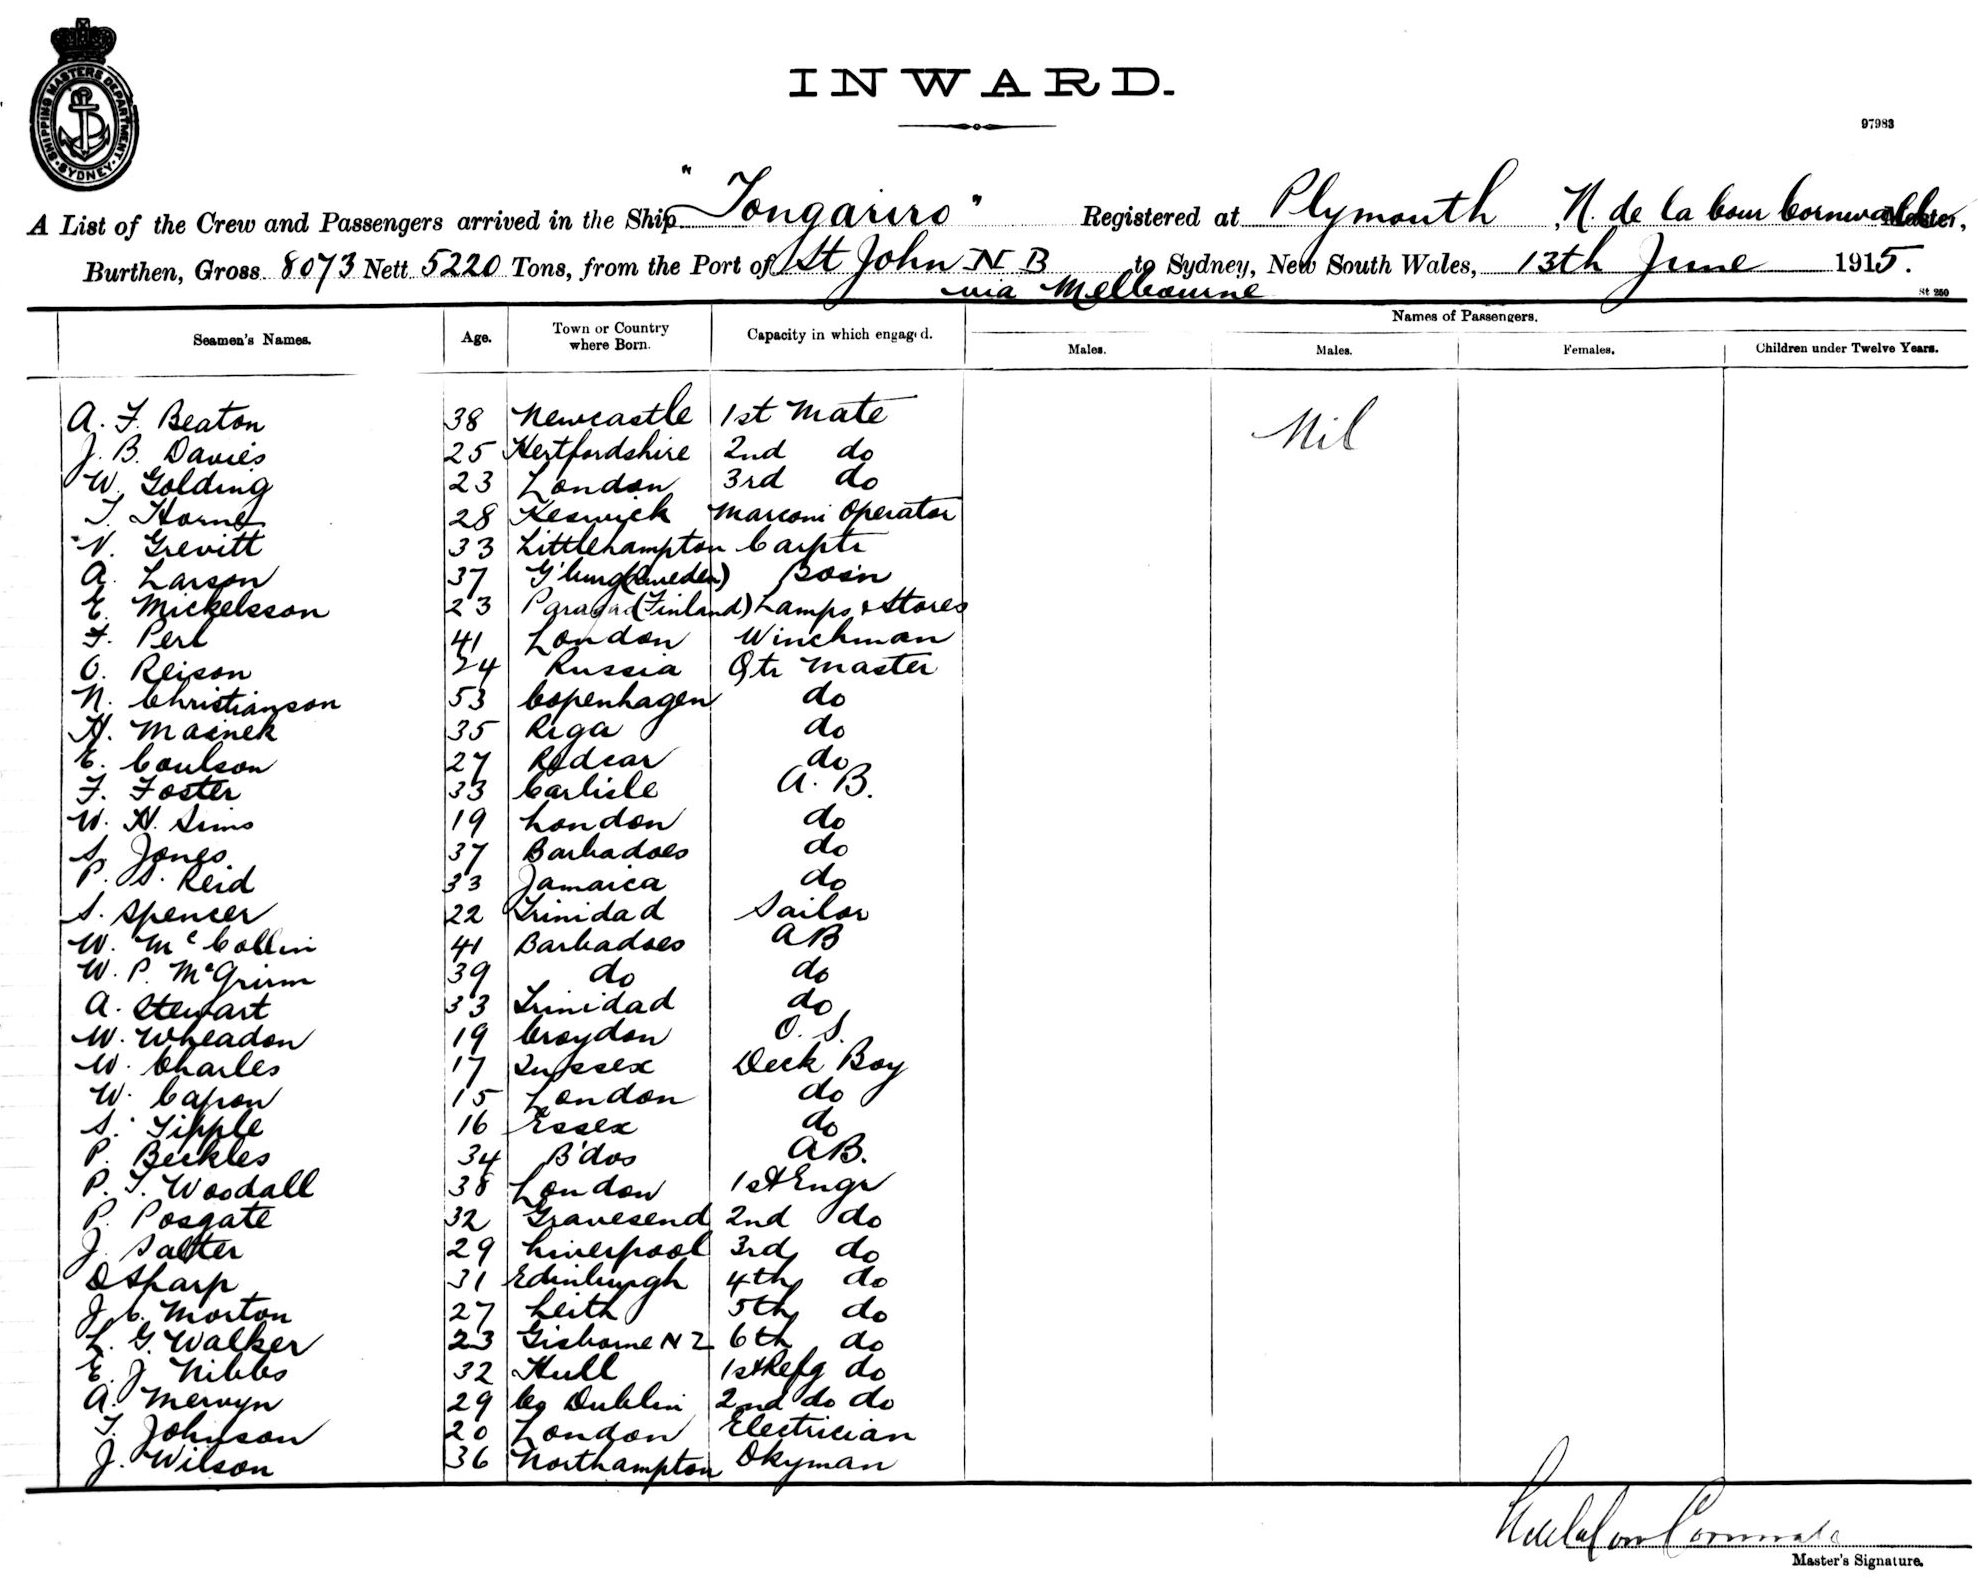 SHIPPING MASTERS DEPARTMENT. SYDNEY
INWARD.
97983
A List of the Crew and Passengers arrived in the Ship "Tongariro" Registered at Plymouth, N. de la Cour Cornwall Master,
Burthen, Gross 8073 Nett 5220 Tons, from the Port of St John N B to Sydney, New South Wales, 13th June 1915.
via Melbourne
St 250
Seamen's Names. Age. Town or Country where Born. Capacity in which engaged. Names of Passengers.
Males. Males. Females. Children under Twelve Years.
A. F. Beaton 38 Newcastle 1st Mate Nil
J. B. Davies 25 Hertfordshire 2nd do
W. Golding 23 London 3rd do
T. Horne 28 Keswick Marconi Operator
N. Grevitt 33 Littlehampton Carptr
A. Larson 37 G'burg (Sweden) Bosn
E. Mickelsson 23 (Finland) Lamps & Stores
F. Perl 41 London Winchman
O. Reison 24 Russia Qtr Master
N. Christianson 53 Copenhagen do
H. Masnek 35 Riga do
E. Coulson 27 Redcar do
F. Foster 33 Carlisle A. B.
W. H. Sims 19 London do
S. Jones 37 Barbadoes do
P. S. Reid 33 Jamaica do
S. Spencer 22 Trinidad Sailor
W. McCollin 41 Barbadoes AB
W. P. 39 do do
A. Stewart 33 Trinidad do
W. Wheadon 19 Croydon O. S.
W. Charles 17 Sussex Deck Boy
W. Capon 15 London do
S. Tipple 16 Essex do
P. Beckles 34 B'dos AB.
P. T. Woodall 38 London 1st Engr
P. Posgate 32 Gravesend 2nd do
J. Salter 29 Liverpool 3rd do
D Sharp 31 Edinburgh 4th do
J. C. Morton 27 Leith 5th do
L. G. Walker 23 Gisborne N Z 6th do
E. J. Nibbs 32 Hull 1st Refg do
A. Mervyn 29 Co Dublin 2nd do do
T. Johnson 20 London Electrician
J. Wilson 36 Northampton Dkyman
N de la Cour Cornwall
Master's Signature.